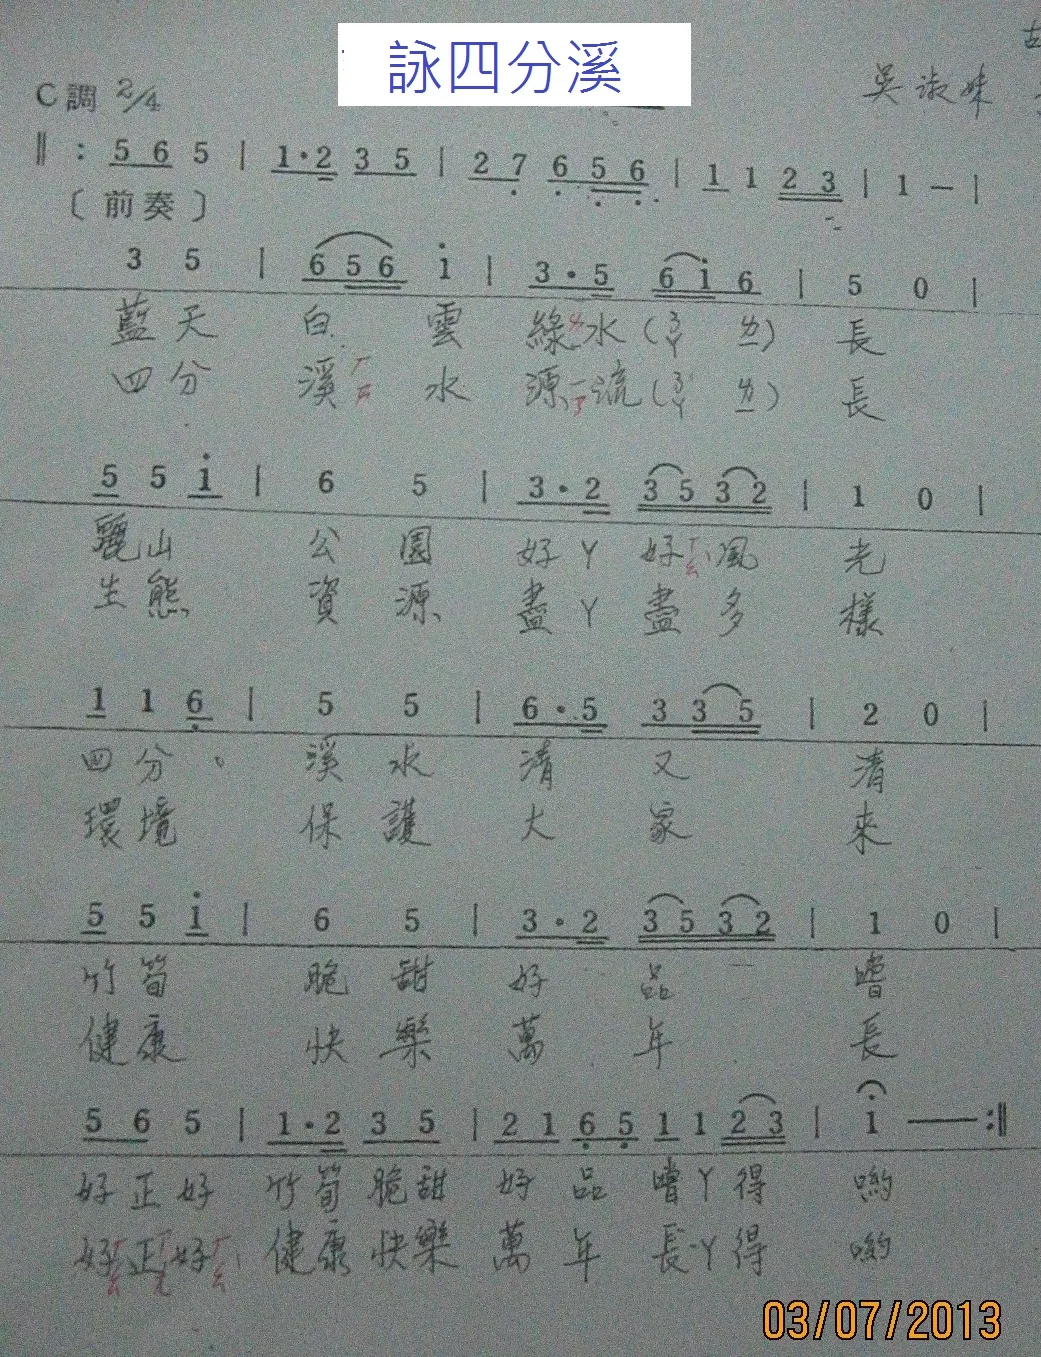 詠四分溪
C調 2/4
吳淑妹
‖: 5 6 5 | 1·2 3 5 | 2 7 6 5 6 | 1 1 2 3 | 1 — |
〔前奏〕
3 5 | 6 5 6 i | 3·5 6 i 6 | 5 0 |
藍天 白 雲 綠水(ㄋㄚ ㄌㄧ) 長
四分 溪 水 源流(ㄋㄚ ㄌㄧ) 長
5 5 i | 6 5 | 3·2 3 5 3 2 | 1 0 |
麗山 公 園 好ㄚ 好 風 光
生態 資 源 盡ㄚ 盡 多 樣
1 1 6 | 5 5 | 6·5 3 3 5 | 2 0 |
四分 溪 水 清 又 清
環境 保 護 大 家 來
5 5 i | 6 5 | 3·2 3 5 3 2 | 1 0 |
竹筍 脆 甜 好 品 嚐
健康 快 樂 萬 年 長
5 6 5 | 1·2 3 5 | 2 1 6 5 1 1 2 3 | 1 — :‖
好正好 竹筍脆甜 好品嚐ㄚ得 喲
好正好 健康快樂 萬年長ㄚ得 喲
03/07/2013